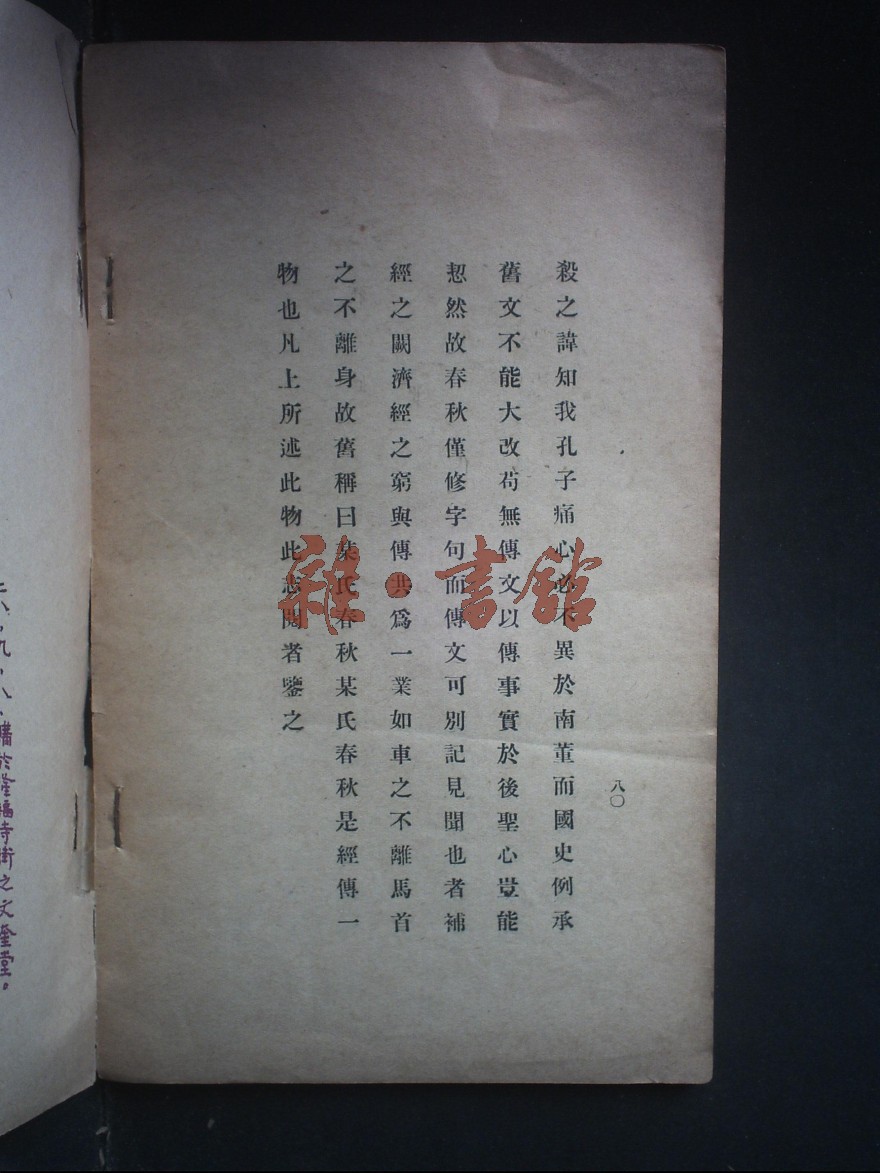 殺之諱知我孔子痛心必不異於南董而國史例承
舊文不能大改苟無傳文以傳事實於後聖心豈能
恝然故春秋僅修字句而傳文可別記見聞也者補
經之闕濟經之窮與傳共爲一業如車之不離馬首
之不離身故舊稱曰某氏春秋某氏春秋是經傳一
物也凡上所述此物此志閱者鑒之
八〇
雜·書館
六、九、八、購於隆福寺街之文奎堂。